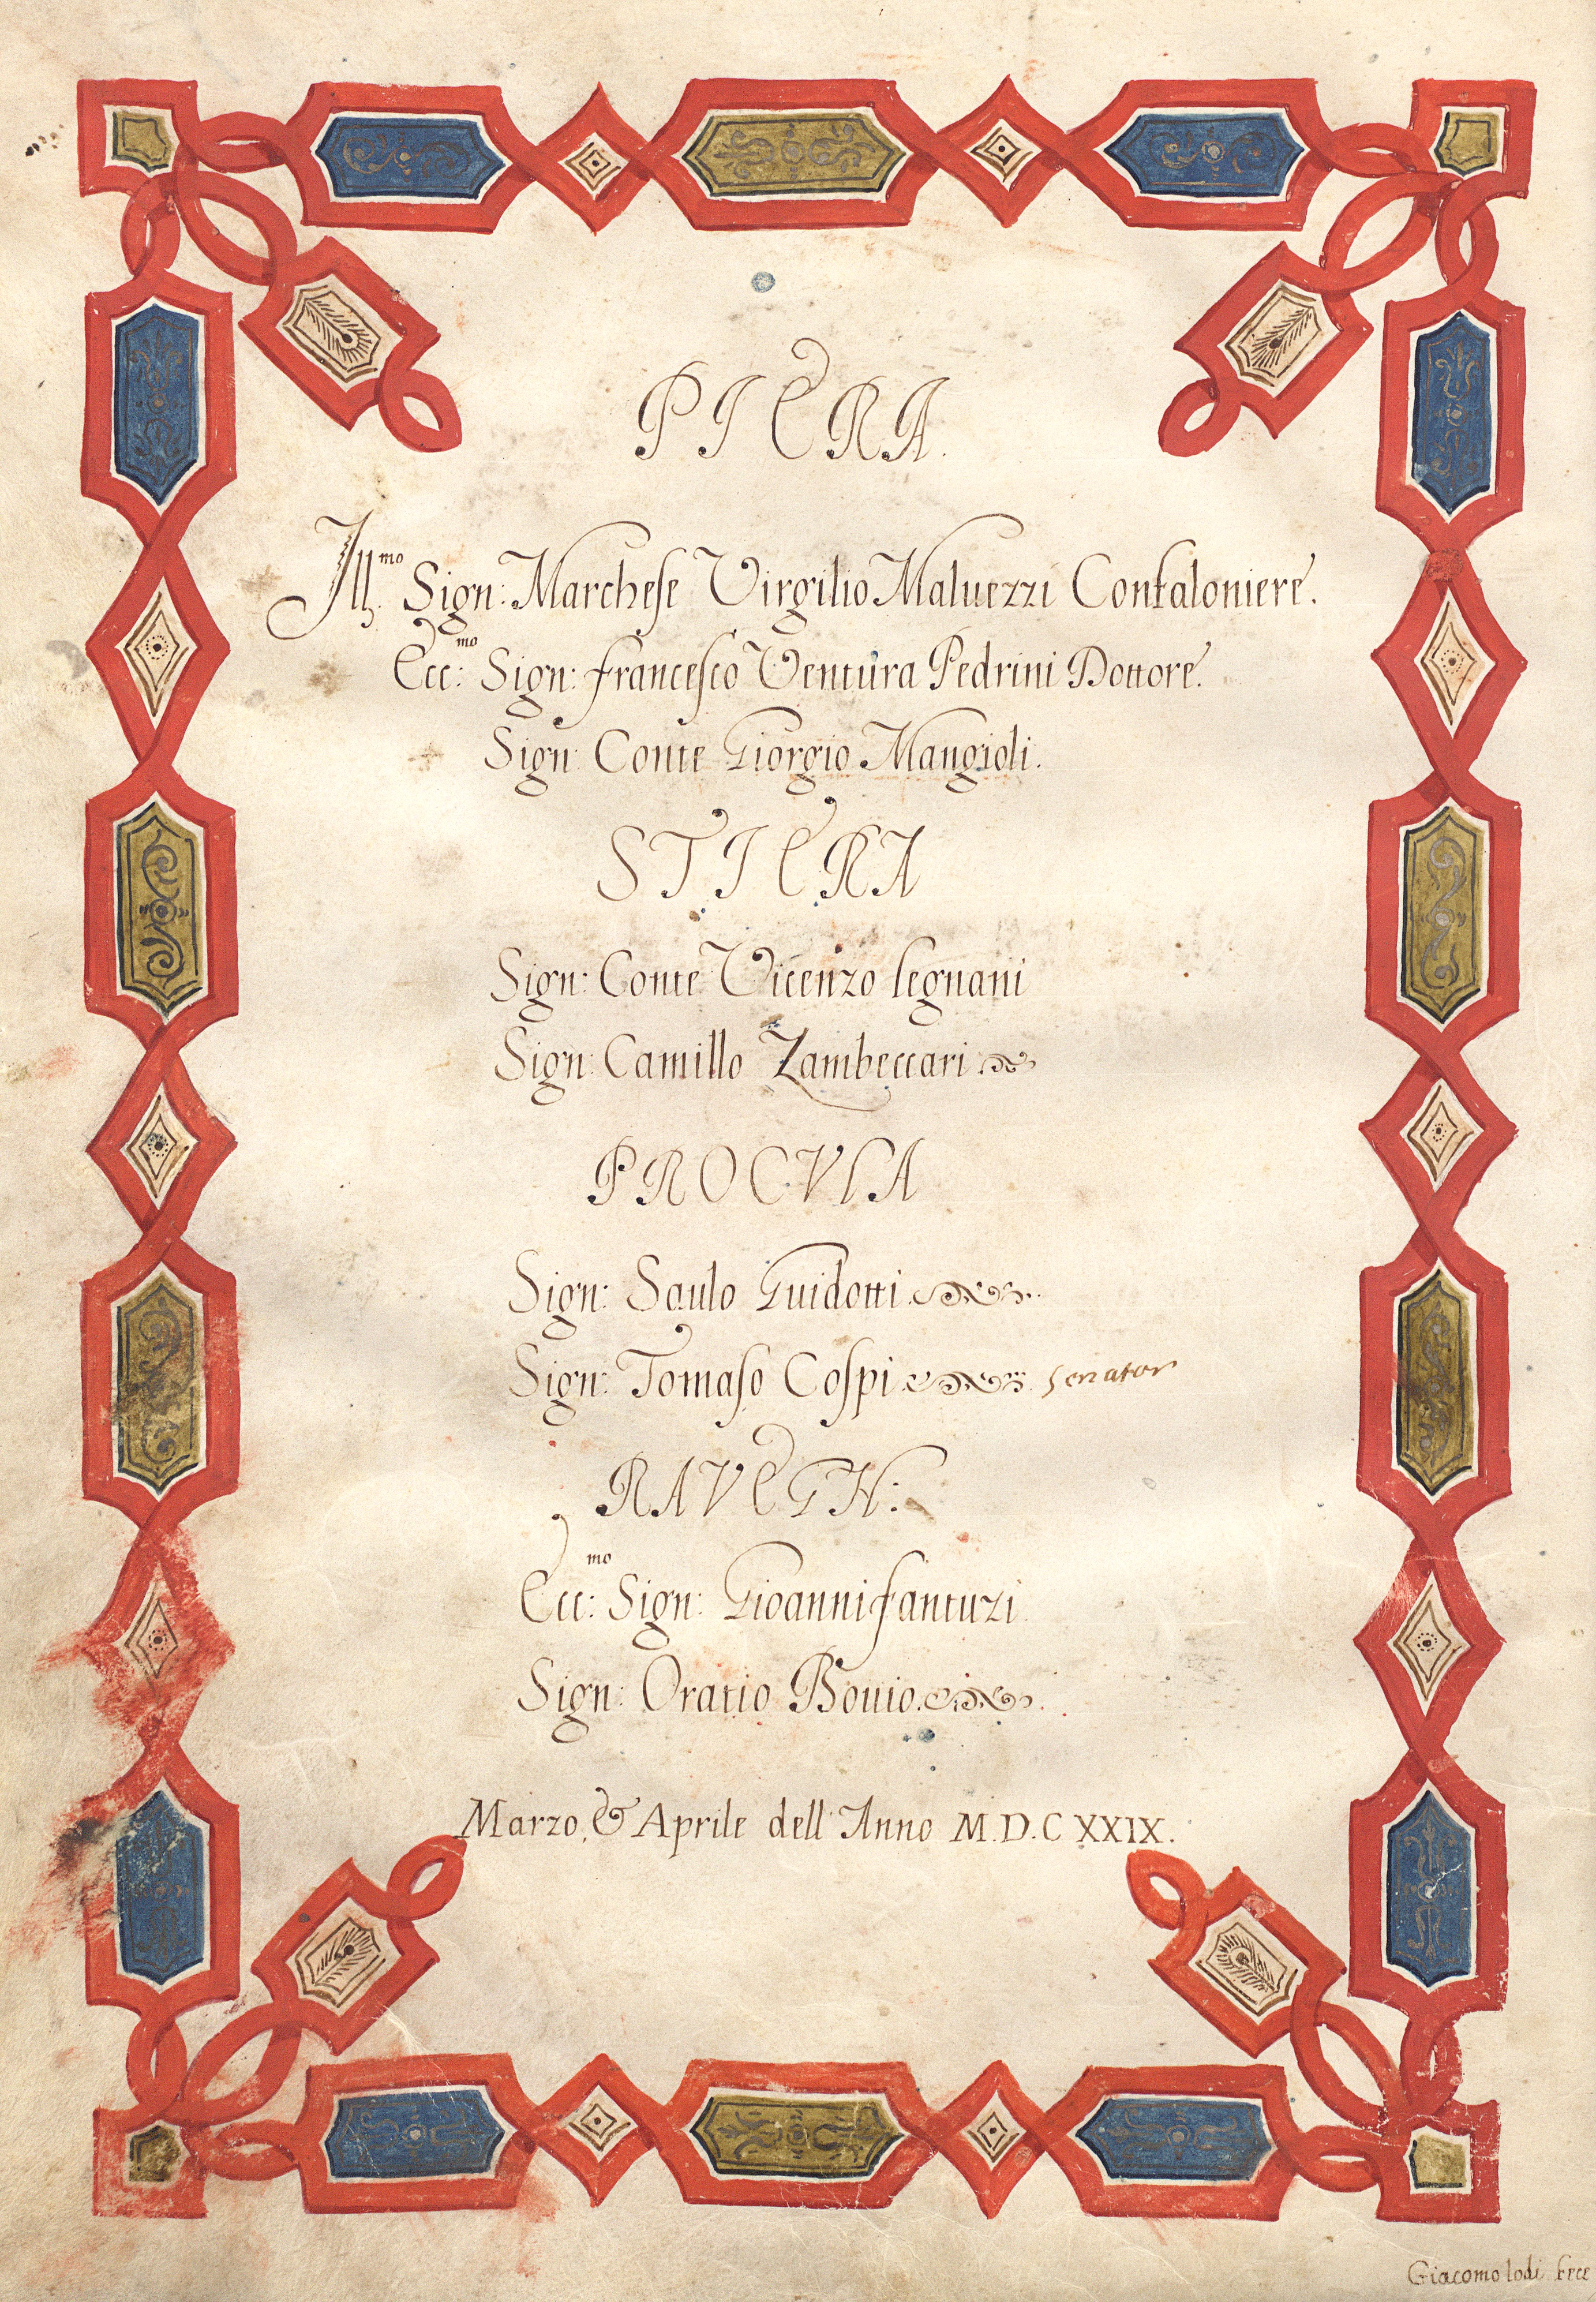 PIERA.
Ill.mo Sign: Marchese Virgilio Maluezzi Confaloniere.
Ecc:mo Sign: francesco Ventura Pedrini Dottore.
Sign: Conte Giorgio Mangioli.
STIERA
Sign: Conte Vicenzo legnani
Sign: Camillo Zambeccari
PROCVLA
Sign: Saulo Guidotti
Sign: Tomaso Cospi senator
RAVEGH:
Ecc:mo Sign: Gioanni fantuzi
Sign: Oratio Bouio.
Marzo, & Aprile dell'Anno M.D.C XXIX.
Giacomo lodi fece